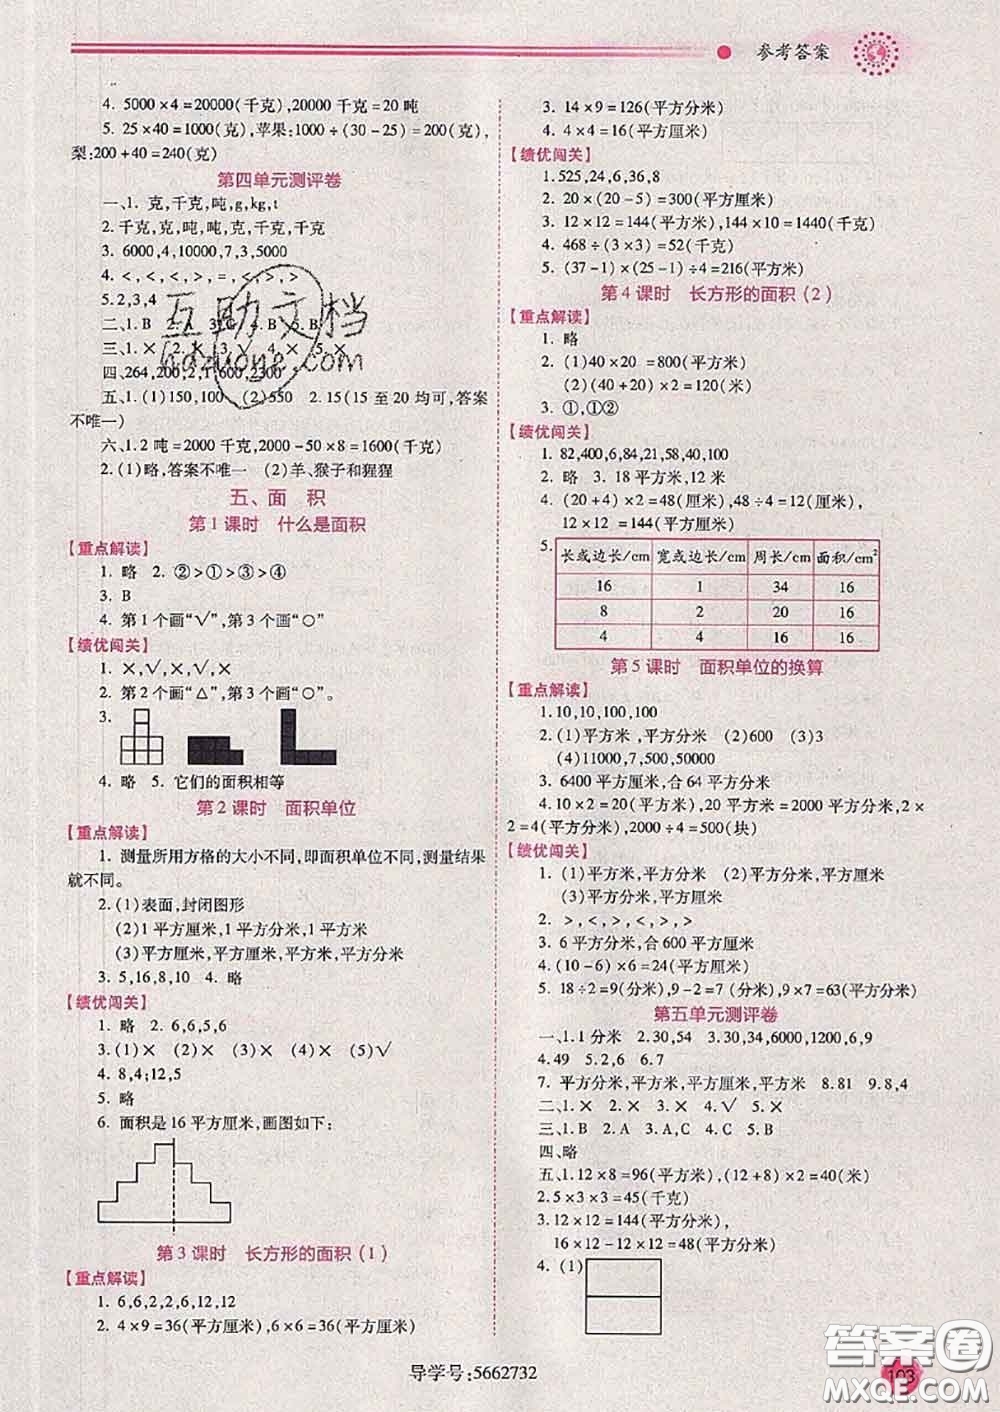 参考答案
4. 5000×4=20000(千克),20000千克=20吨
5. 25×40=1000(克),苹果:1000÷(30-25)=200(克),
梨:200+40=240(克)
第四单元测评卷
一、1. 克,千克,吨,g,kg,t
2. 千克,克,吨,吨,克,千克,千克
3. 6000,4,10000,7,3,5000
4. <,<,<,>,=,<,>,>
5.2,3,4
二、1.B 2.A 3.C 4.B 5.B
三、1.× 2.× 3.√ 4.× 5.×
四、264,200,2,1,600,2300
五、1.(1)150,100 (2)550 2.15(15至20均可,答案
不唯一)
六、1.2吨=2000千克,2000-50×8=1600(千克)
2.(1)略,答案不唯一 (2)羊、猴子和猩猩
五、面 积
第1课时 什么是面积
【重点解读】
1. 略 2. ②>①>③>④
3. B
4. 第1个画“√”,第3个画“○”
【绩优闯关】
1. ×,√,×,√,×
2. 第2个画“△”,第3个画“○”
3.
4. 略 5. 它们的面积相等
第2课时 面积单位
【重点解读】
1. 测量所用方格的大小不同,即面积单位不同,测量结果
就不同。
2.(1)表面,封闭图形
(2)1平方厘米,1平方分米,1平方米
(3)平方厘米,平方厘米,平方米,平方分米
3. 5,16,8,10 4. 略
【绩优闯关】
1. 略 2. 6,6,5,6
3.(1)× (2)√ (3)× (4)× (5)√
4. 8,4;12,5
5. 略
6. 面积是16平方厘米,画图如下:
第3课时 长方形的面积(1)
【重点解读】
1. 6,6,2,2,6,12,12
2. 4×9=36(平方厘米),6×6=36(平方厘米)
3. 14×9=126(平方分米)
4. 4×4=16(平方厘米)
【绩优闯关】
1.525,24,6,36,8
2. 20×(20-5)=300(平方厘米)
3. 12×12=144(平方米),144×10=1440(千克)
4. 468÷(3×3)=52(千克)
5. (37-1)×(25-1)÷4=216(平方厘米)
第4课时 长方形的面积(2)
【重点解读】
1. 略
2. (1)40×20=800(平方米)
(2)(40+20)×2=120(米)
3. ①,①②
【绩优闯关】
1. 82,400,6,84,21,58,40,100
2. 略 3. 18平方米,12米
4. (20+4)×2=48(厘米),48÷4=12(厘米),
12×12=144(平方厘米)
5. 长或边长/cm 宽或边长/cm 周长/cm 面积/cm²
16 1 34 16
8 2 20 16
4 4 16 16
第5课时 面积单位的换算
【重点解读】
1.10,10,100,100
2. (1)平方米,平方厘米 (2)600 (3)3
(4)11000,7,500,50000
3. 6400平方厘米,合64平方分米
4. 10×2=20(平方米),20平方米=2000平方分米,2×
2=4(平方分米),2000÷4=500(块)
【绩优闯关】
1. (1)平方米,平方分米 (2)平方米,平方厘米
(3)平方分米,平方厘米
2. >,<,>,<,>,>
3. 6平方分米,合600平方厘米
4. (10-6)×6=24(平方厘米)
5. 18÷2=9(分米),9-2=7(分米),9×7=63(平方分米)
第五单元测评卷
一、1.1分米 2.30,54 3.30,34,6000,1200,6,9
4.49 5.2,6 6.7
7. 平方分米,平方厘米,平方米,平方分米 8.81 9.8,4
二、1.× 2.× 3.× 4.√ 5.×
三、1.B 2.A 3.A,C 4.C 5.B
四、略
五、1.12×8=96(平方米),(12+8)×2=40(米)
2.5×3×3=45(千克)
3.12×12=144(平方米),
16×12-12×12=48(平方米)
4. (1)
导学号:5662732
103
互助文档
答案圈
MXQE.COM